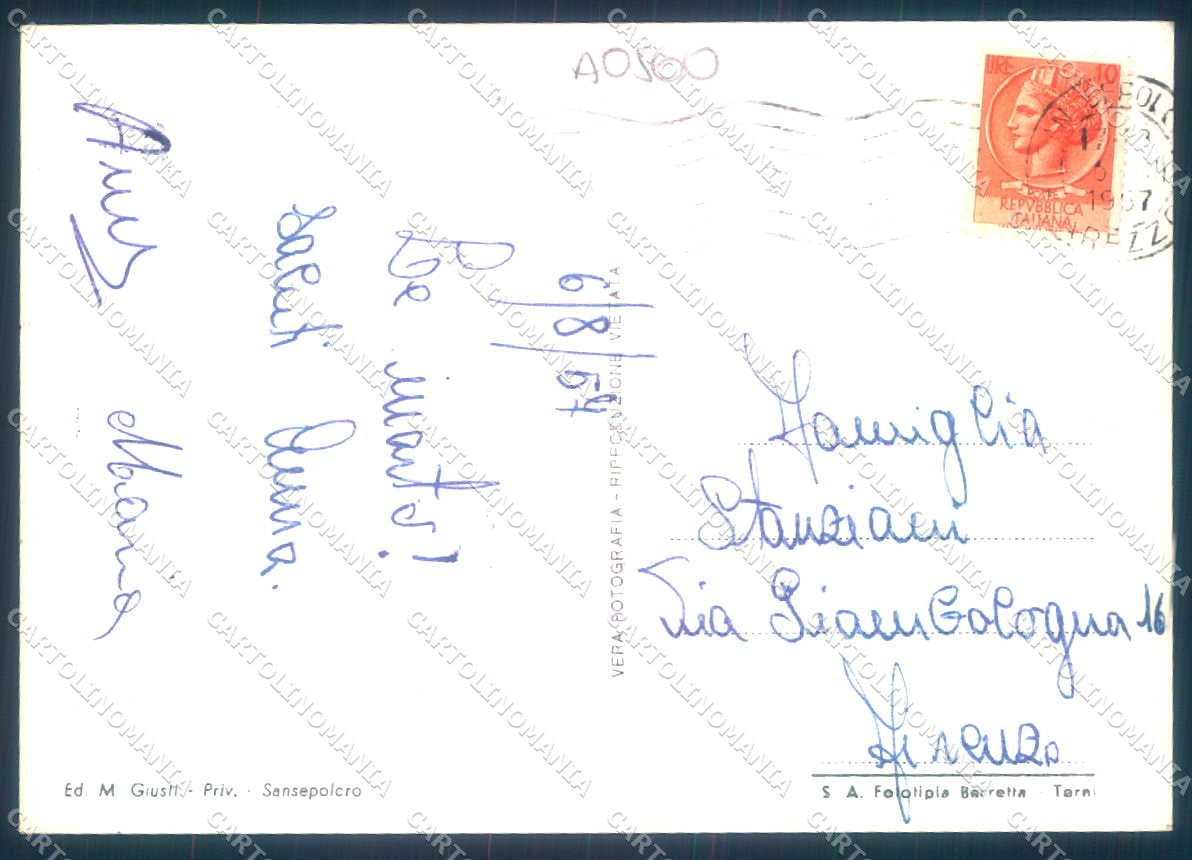 A0500
LIRE 10
REPVBBLICA
ITALIANA
1957
6/8/57
saluti Anna.
Maria
VERA FOTOGRAFIA - RIPRODUZIONE VIETATA
Famiglia
Stanziani
Via Giambologna 16
Firenze
Ed. M. Giusti - Priv. - Sansepolcro
S. A. Fototipia Berretta - Terni
CARTOLINOMANIA